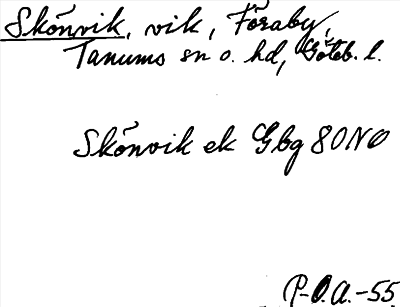 Skönvik, vik, Föraby,
Tanums sn o. hd, Göteb. l.
Skönvik ek Gbg 80NO
P-O.A.-55